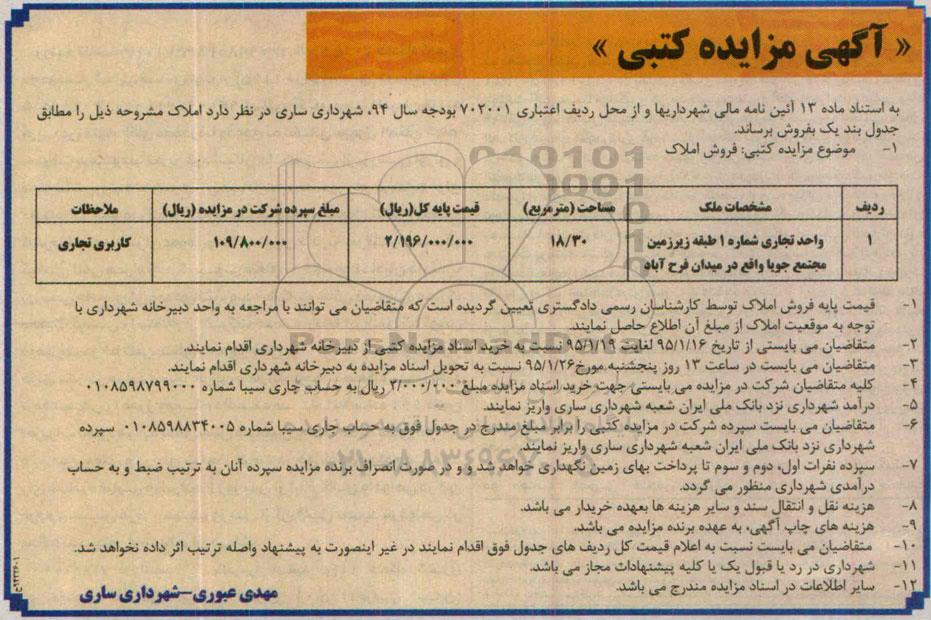 « آگهی مزایده کتبی »
به استناد ماده ۱۳ آئین نامه مالی شهرداریها و از محل ردیف اعتباری ۷۰۲۰۰۱ بودجه سال ۹۴، شهرداری ساری در نظر دارد املاک مشروحه ذیل را مطابق
جدول بند یک بفروش برساند.
۱- موضوع مزایده کتبی: فروش املاک
ردیف مشخصات ملک مساحت (مترمربع) قیمت پایه کل(ریال) مبلغ سپرده شرکت در مزایده (ریال) ملاحظات
۱ واحد تجاری شماره ۱ طبقه زیرزمین ۱۸/۳۰ ۲/۱۹۶/۰۰۰/۰۰۰ ۱۰۹/۸۰۰/۰۰۰ کاربری تجاری
مجتمع جویا واقع در میدان فرح آباد
۱- قیمت پایه فروش املاک توسط کارشناسان رسمی دادگستری تعیین گردیده است که متقاضیان می توانند با مراجعه به واحد دبیرخانه شهرداری با
توجه به موقعیت املاک از مبلغ آن اطلاع حاصل نمایند.
۲- متقاضیان می بایستی از تاریخ ۹۵/۱/۱۶ لغایت ۹۵/۱/۱۹ نسبت به خرید اسناد مزایده کتبی از دبیرخانه شهرداری اقدام نمایند.
۳- متقاضیان می بایست در ساعت ۱۳ روز پنجشنبه مورخ ۹۵/۱/۲۶ نسبت به تحویل اسناد مزایده به دبیرخانه شهرداری اقدام نمایند.
۴- کلیه متقاضیان شرکت در مزایده می بایستی جهت خرید اسناد مزایده مبلغ ۲/۰۰۰/۰۰۰ ریال به حساب جاری سیبا شماره ۰۱۰۸۵۹۸۷۹۹۰۰۰
۵- درآمد شهرداری نزد بانک ملی ایران شعبه شهرداری ساری واریز نمایند.
۶- متقاضیان می بایست سپرده شرکت در مزایده کتبی را برابر مبلغ مندرج در جدول فوق به حساب جاری سیبا شماره ۰۱۰۸۵۹۸۸۳۴۰۰۵ سپرده
شهرداری نزد بانک ملی ایران شعبه شهرداری ساری واریز نمایند.
۷- سپرده نفرات اول، دوم و سوم تا پرداخت بهای زمین نگهداری خواهد شد و و در صورت انصراف برنده مزایده سپرده آنان به ترتیب ضبط و به حساب
درآمدی شهرداری منظور می گردد.
۸- هزینه نقل و انتقال سند و سایر هزینه ها بعهده خریدار می باشد.
۹- هزینه های چاپ آگهی، به عهده برنده مزایده می باشد.
۱۰- متقاضیان می بایست نسبت به اعلام قیمت کل ردیف های جدول فوق اقدام نمایند در غیر اینصورت به پیشنهاد واصله ترتیب اثر داده نخواهد شد.
۱۱- شهرداری در رد یا قبول یک یا کلیه پیشنهادات مجاز می باشد.
۱۲- سایر اطلاعات در اسناد مزایده مندرج می باشد.
مهدی عبوری-شهرداری ساری